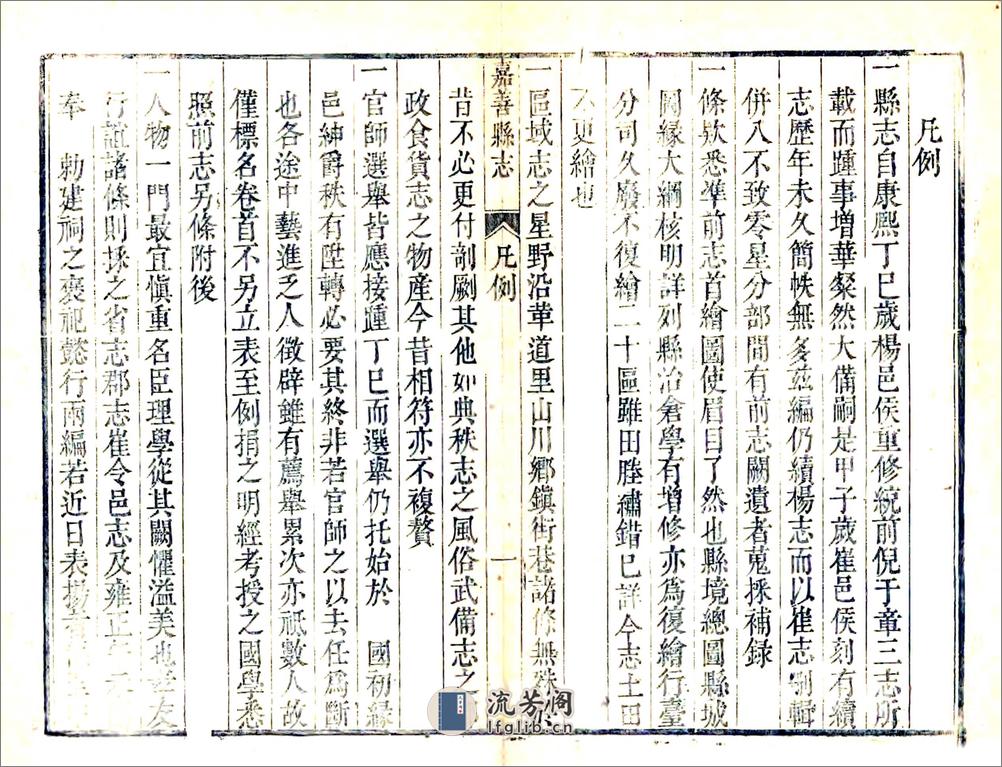 凡例
一縣志自康熙丁巳歲楊邑侯重修統前倪于章三志所
載而踵事增華粲然大備嗣是甲子歲崔邑侯刻有續
志歷年未久簡帙無多茲編仍續楊志而以崔志刪輯
併入不致零星分部間有前志闕遺者蒐採補錄
一條欵悉準前志首繪圖使眉目了然也縣境總圖縣城
圖緣大綱核明詳列縣治倉學有增修亦爲復繪行臺
分司久廢不復繪二十區雖田塍繡錯已詳今志土田
不更繪也
一區域志之星野沿革道里山川鄉鎮街巷諸條無殊
昔不必更付剞劂其他如典秩志之風俗武備志之
政食貨志之物產今昔相符亦不複贅
一官師選舉皆應接踵丁巳而選舉仍托始於 國初緣
邑紳爵秩有陞轉必要其終非若官師之以去任爲斷
也各途中藝進乏人徵辟雖有薦舉累次亦祇數人故
僅標名卷首不另立表至例捐之明經考授之國學悉
照前志另條附後
一人物一門最宜慎重名臣理學從其闕懼溢美也孝友
行誼諸條則採之省志郡志崔令邑志及雍正
奉 勅建祠之襃祀懿行兩編若近日表揚
嘉善縣志 凡例 一
流芳阁
lfglib.cn